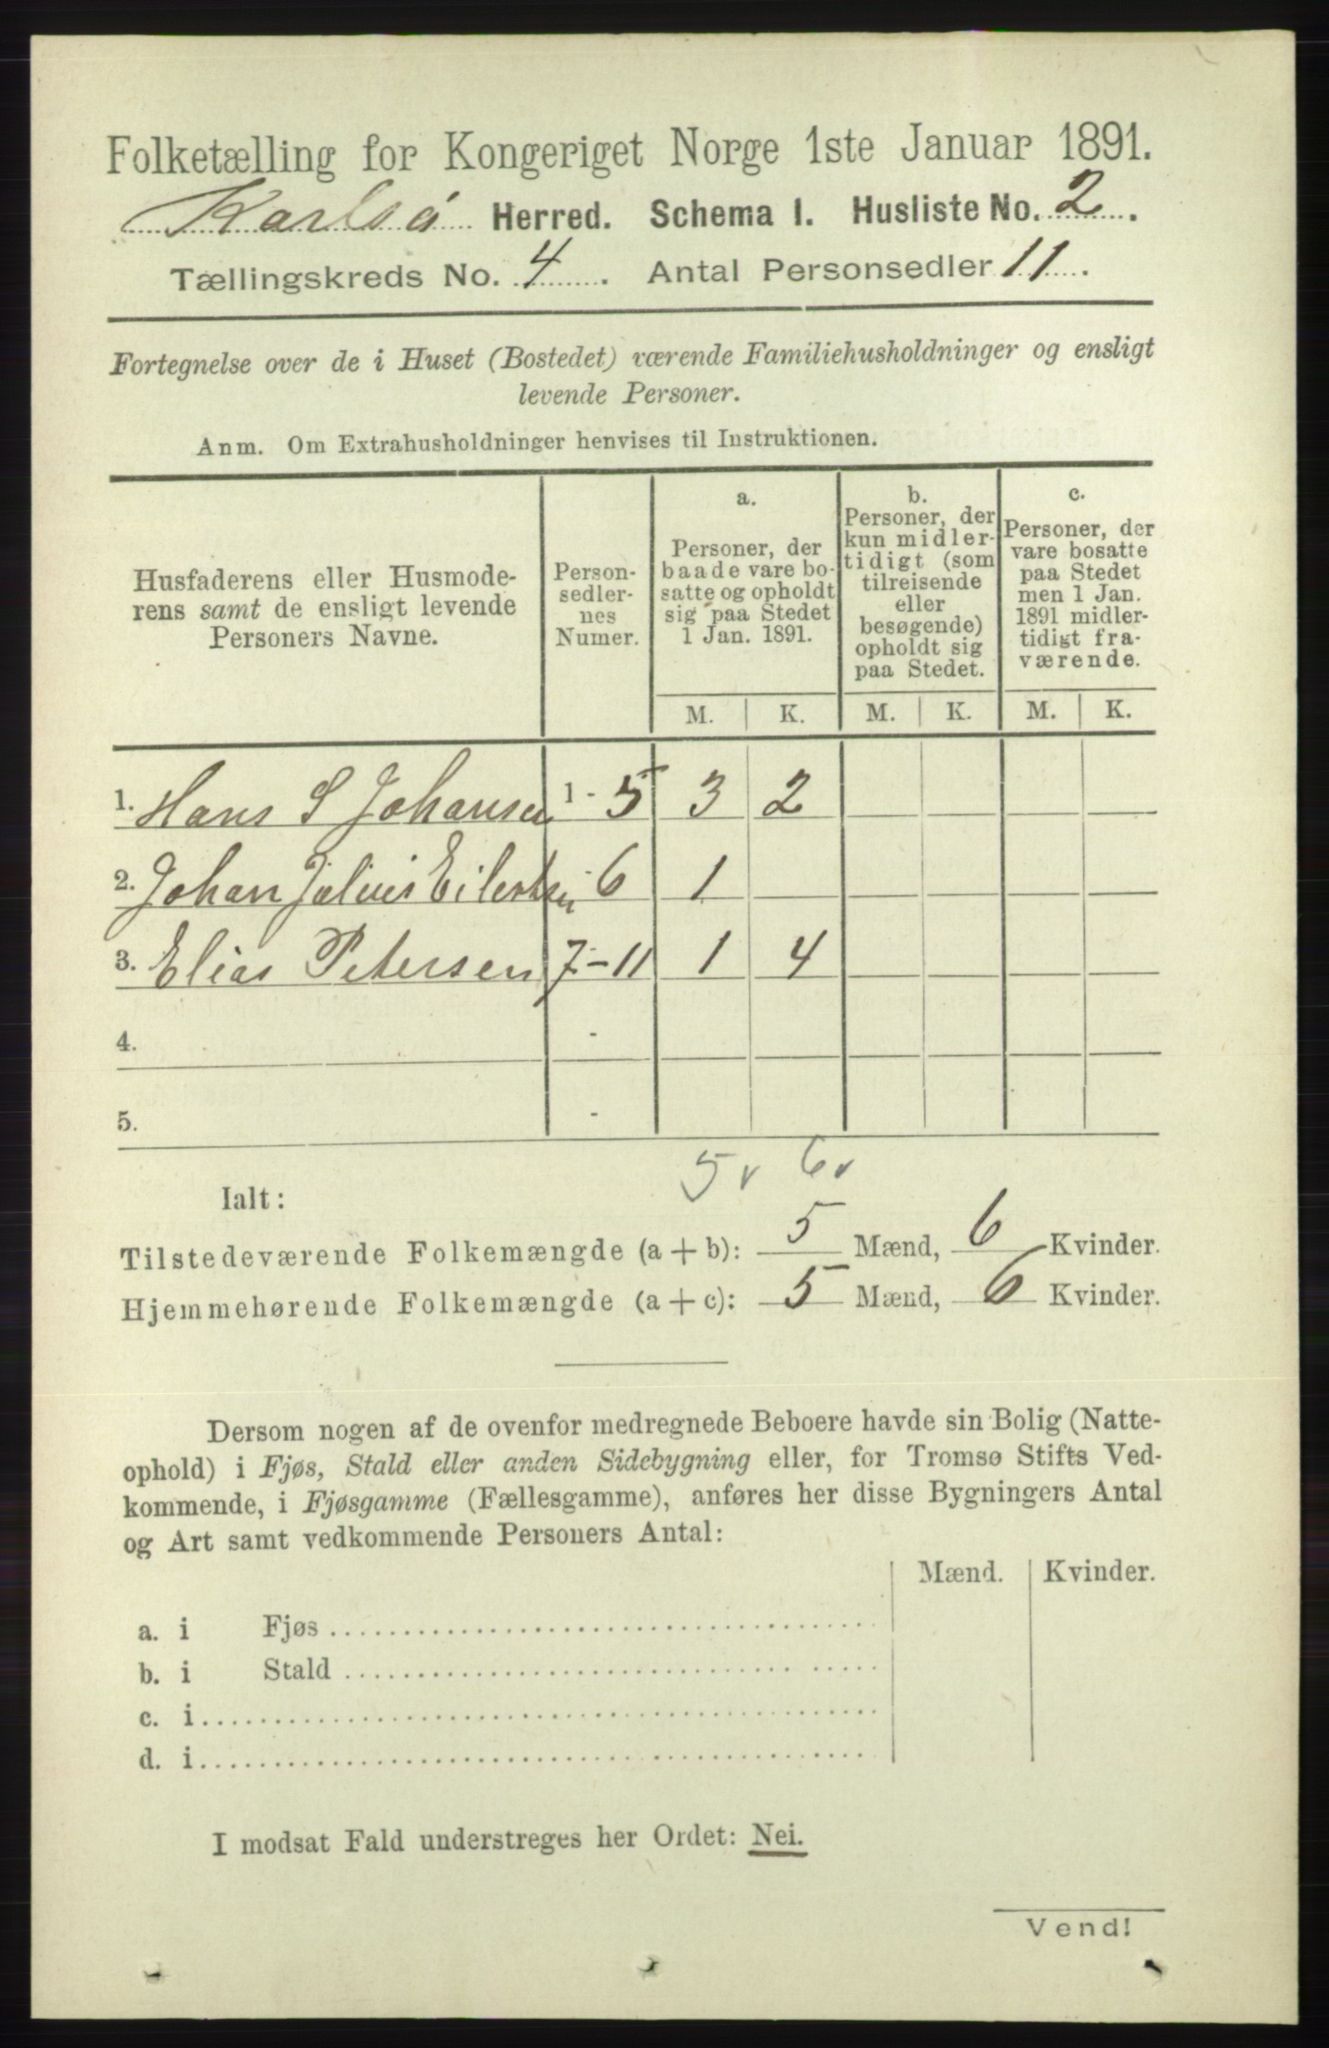 Folketælling for Kongeriget Norge 1ste Januar 1891.
Karlsö Herred. Schema I. Husliste No. 2.
Tællingskreds No. 4. Antal Personsedler 11.
Fortegnelse over de i Huset (Bostedet) værende Familiehusholdninger og ensligt
levende Personer.
Anm. Om Extrahusholdninger henvises til Instruktionen.
Husfaderens eller Husmode-
rens samt de ensligt levende
Personers Navne.
Person-
sedler-
nes
Numer.
a.
Personer, der
baade vare bo-
satte og opholdt
sig paa Stedet
1 Jan. 1891.
b.
Personer, der
kun midler-
tidigt (som
tilreisende
eller
besøgende)
opholdt sig
paa Stedet.
c.
Personer, der
vare bosatte
paa Stedet
men 1 Jan.
1891 midler-
tidigt fra-
værende.
M. K. M. K. M. K.
1. Hans S Johansen 1 - 5 3 2
2. Johan Julius Eilertsen - 6 1
3. Elias Petersen 7 - 11 1 4
4. -
5. -
5 v 6 v
Ialt:
Tilstedeværende Folkemængde (a + b): 5 Mænd, 6 Kvinder.
Hjemmehørende Folkemængde (a + c): 5 Mænd, 6 Kvinder.
Dersom nogen af de ovenfor medregnede Beboere havde sin Bolig (Natte-
ophold) i Fjøs, Stald eller anden Sidebygning eller, for Tromsø Stifts Ved-
kommende, i Fjøsgamme (Fællesgamme), anføres her disse Bygningers Antal
og Art samt vedkommende Personers Antal:
Mænd. Kvinder.
a. i Fjøs
b. i Stald
c. i
d. i
I modsat Fald understreges her Ordet: Nei.
Vend!